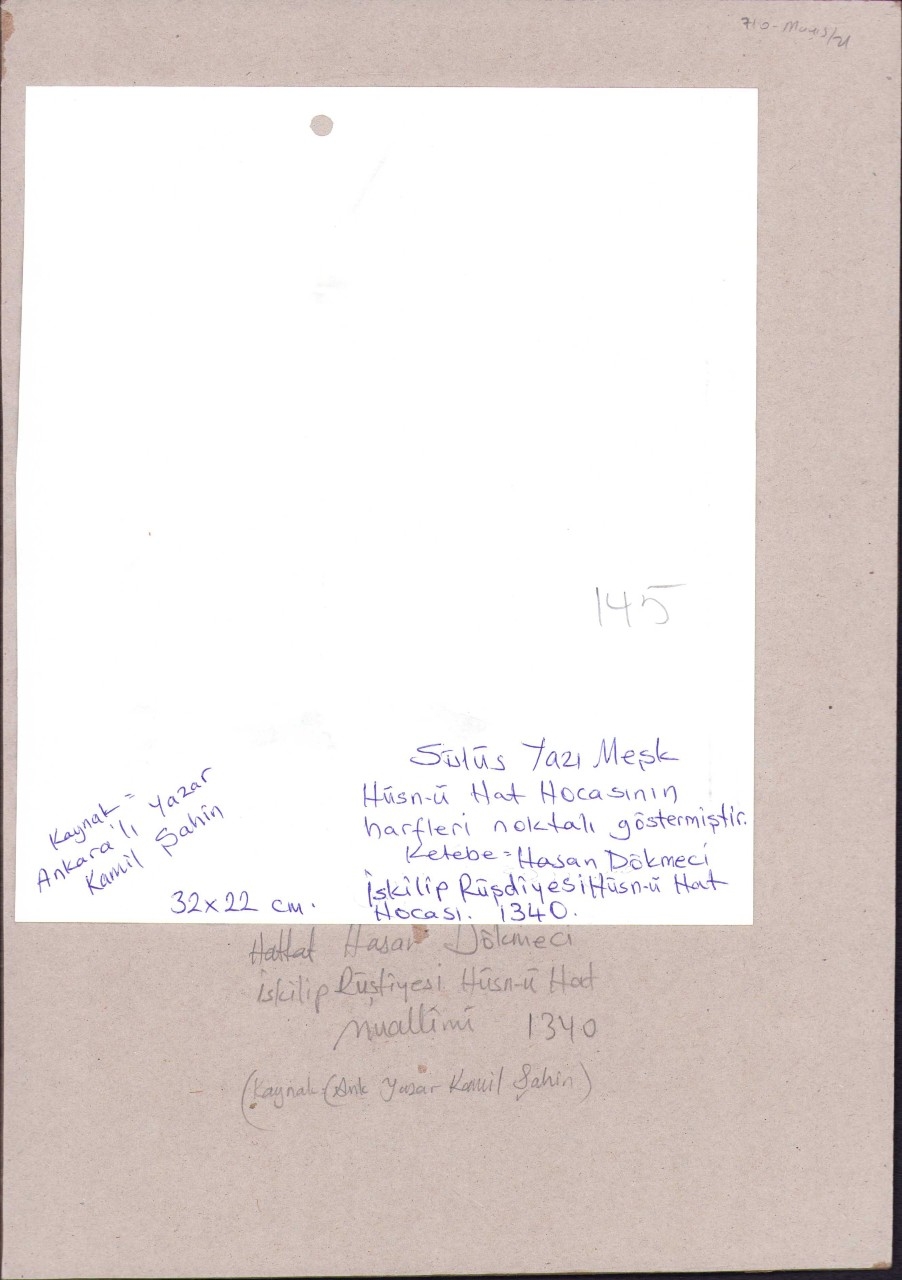 710 - Mayıs/21
145
Sülüs Yazı Meşk
Hüsn-ü Hat Hocasının
harfleri noktalı göstermiştir.
Ketebe = Hasan Dökmeci
İskilip Rüşdiyesi Hüsn-ü Hat
Hocası. 1340.
Kaynak =
Ankara'lı Yazar
Kamil Şahin
32x22 cm.
Hattat Hasan Dökmeci
İskilip Rüştiyesi Hüsn-ü Hat
Muallimi 1340
(Kaynak: (Ank Yazar Kamil Şahin)